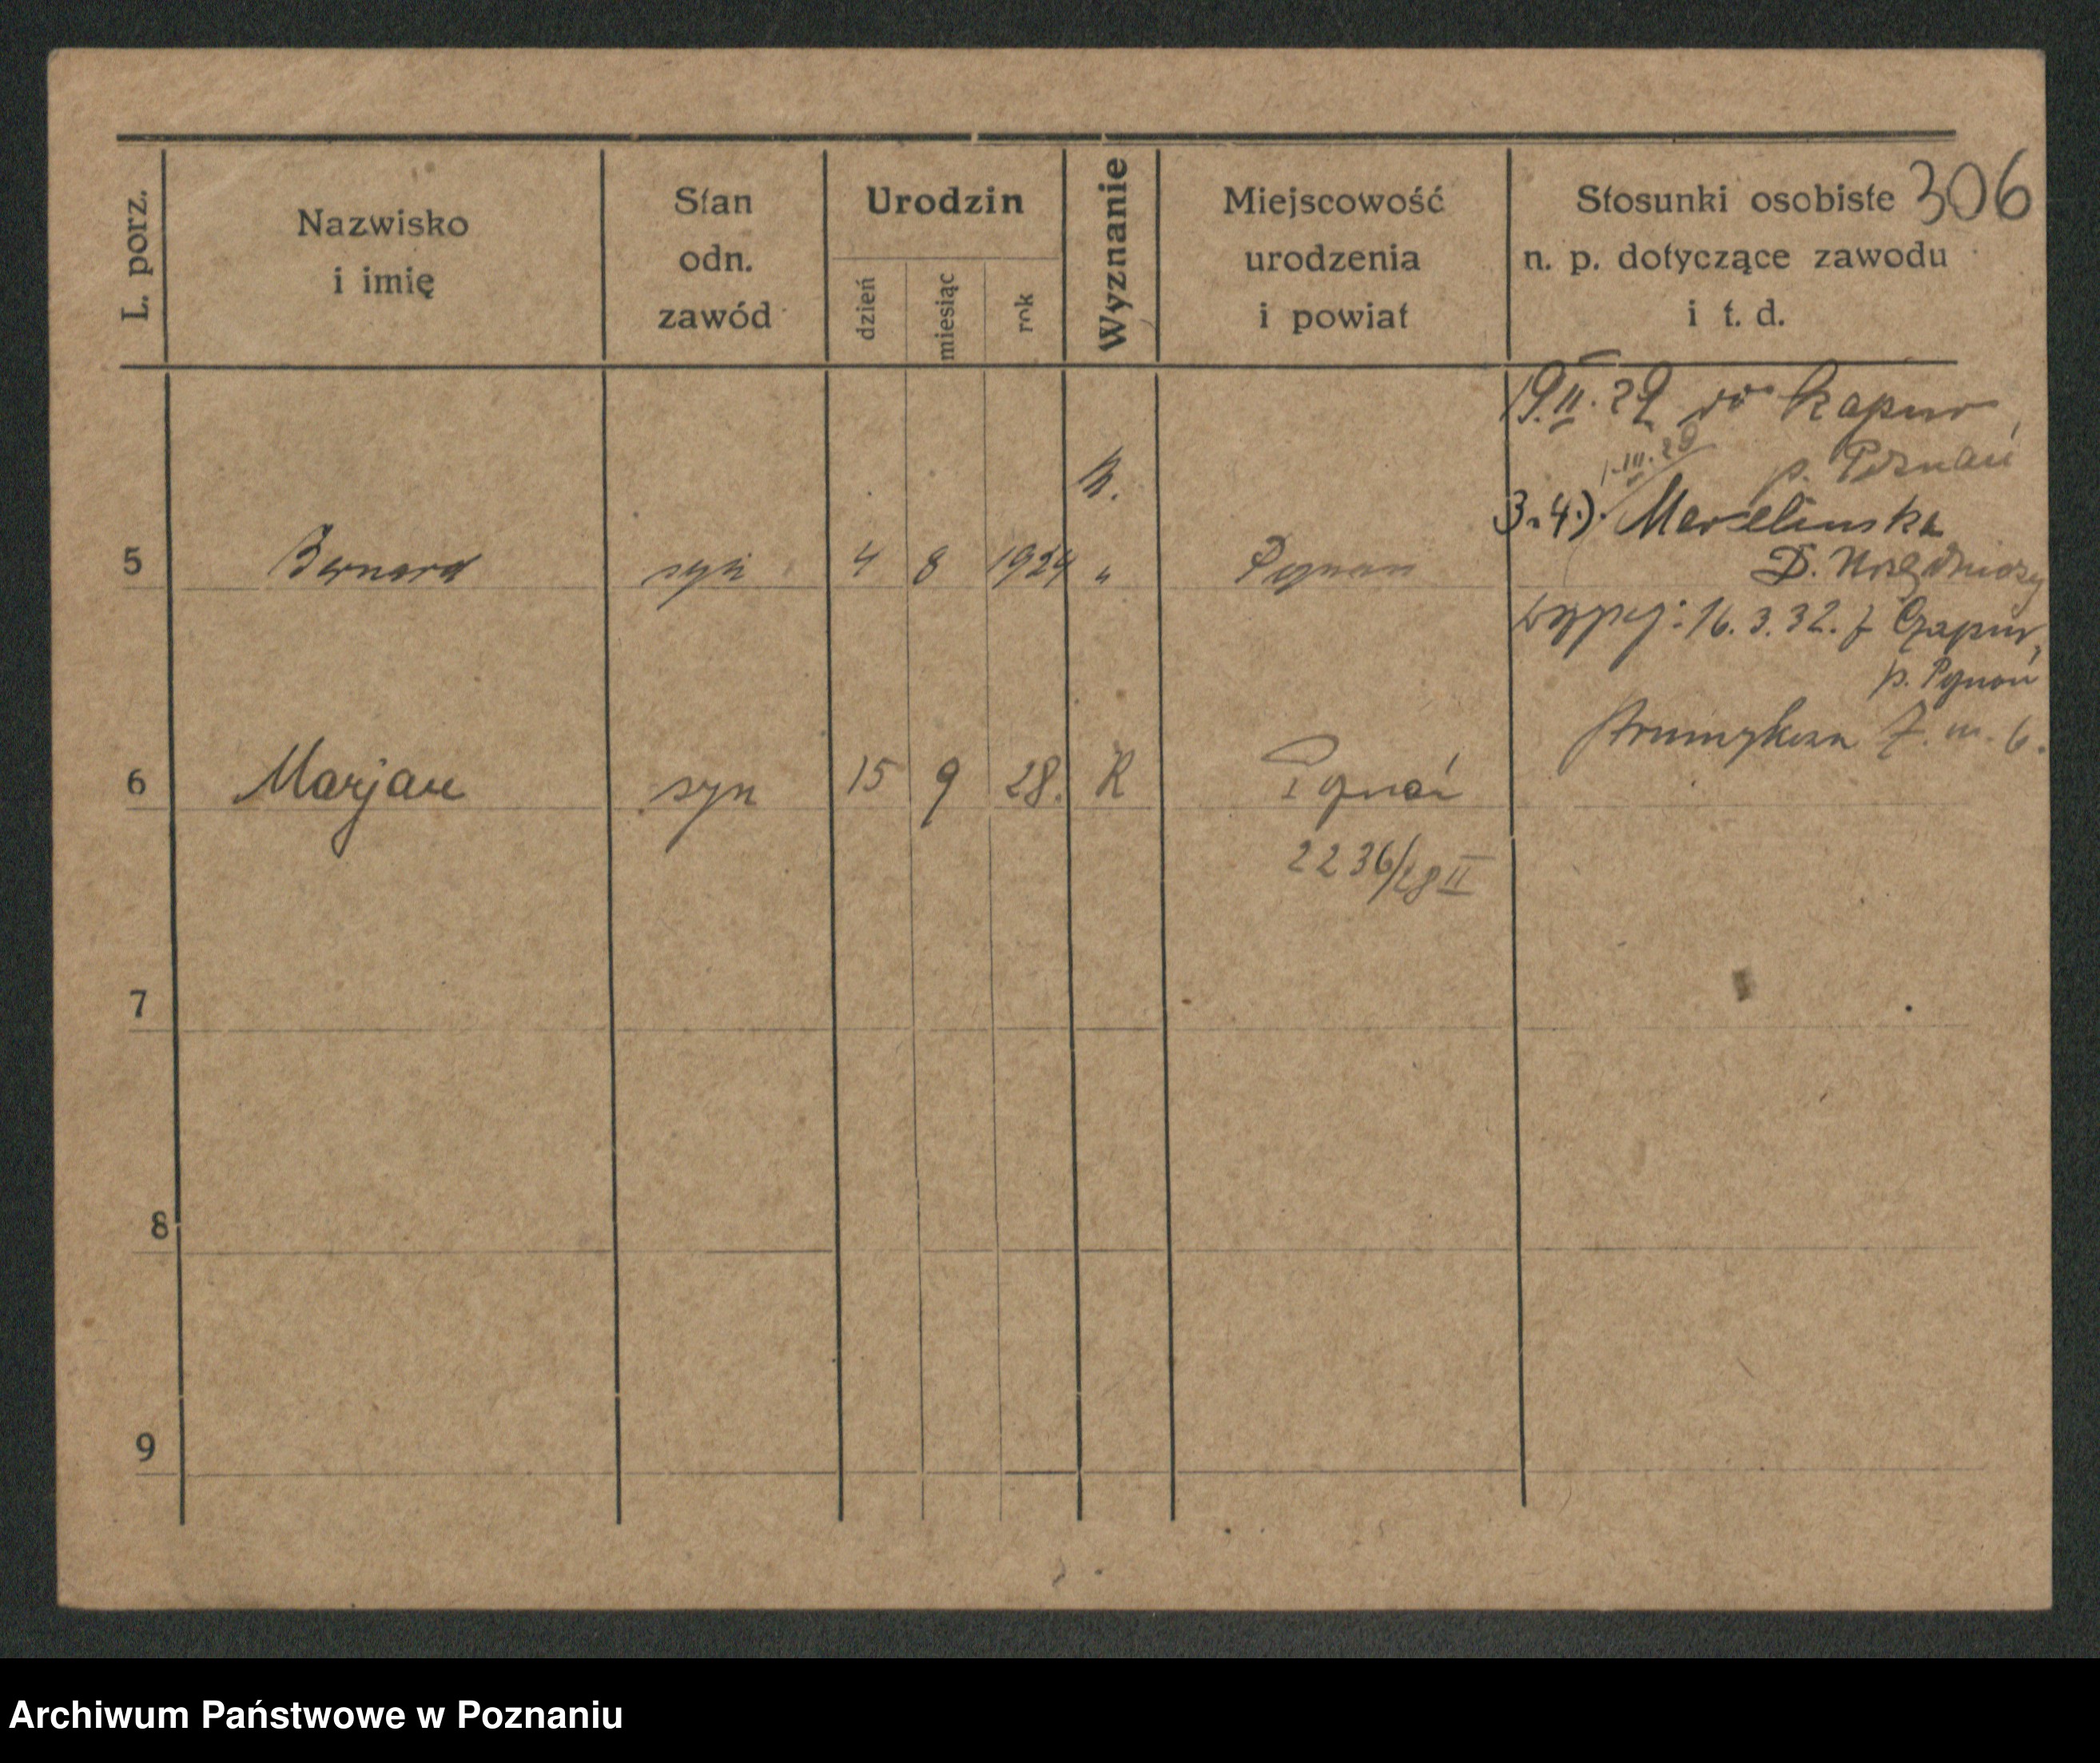 306
L. porz.
Nazwisko
i imię
Stan
odn.
zawód
Urodzin
dzień
miesiąc
rok
Wyznanie
Miejscowość
urodzenia
i powiat
Stosunki osobiste
n. p. dotyczące zawodu
i t. d.
19.II.29 do Czapur
p. Poznań
1.III.29
3.4.)
5 Bernard syn 4 8 1924 "
16.3.32. z Czapur,
p. Poznań
6 Marjan syn 15 9 28. R Poznań
2236/28 II
7
8
9
Archiwum Państwowe w Poznaniu